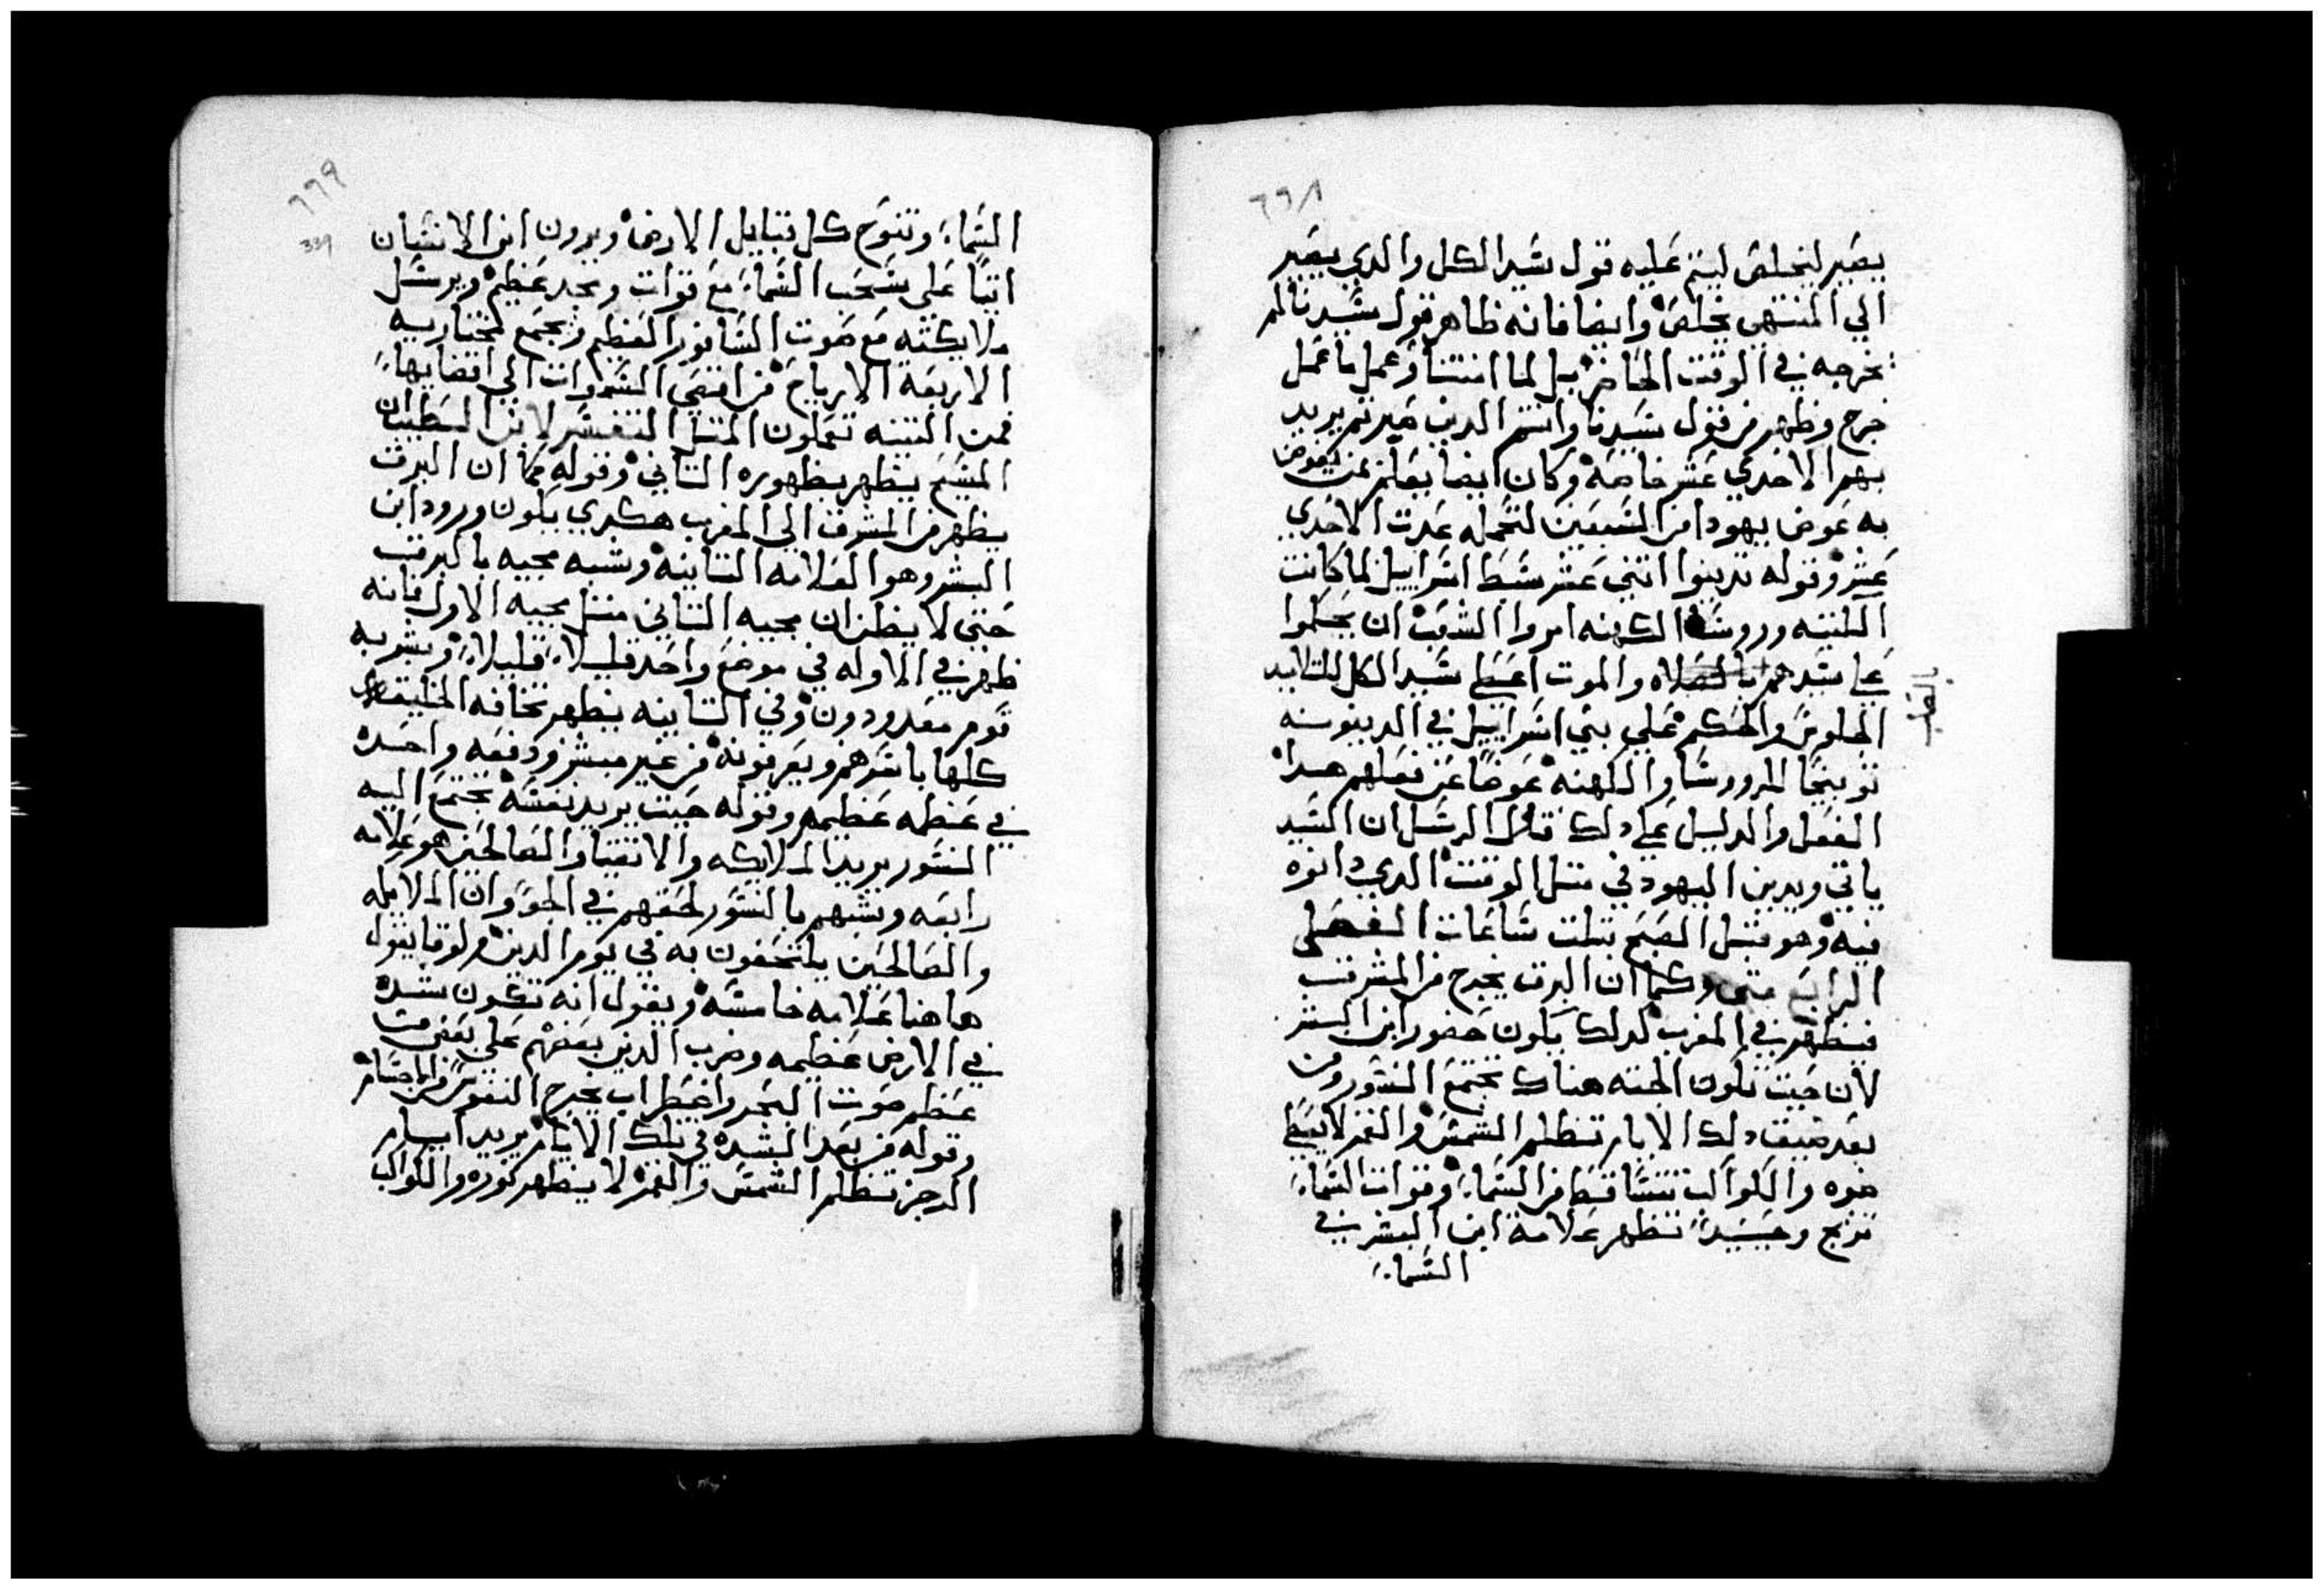 ٦٦٨
يصير ليخلص ليتم عليه قول سيد الكل والدي يصير
الي المنتهي يخلص وايضا فانه ظاهر قول سيدنا لم
يخرجه في الوقت الحاضر بل لما انتنا وعمل ما عمل
خرج وظهر من قول سيدنا وانتم الدين صبرتم يريد
بهم الاحدي عشر خاصة وكان ايضا يعلم بمن يعوض
به عوض يهودا من السبعين لتكمله عدت الاحدي
عشر وقوله تدينوا اتني عشر سبط اسراييل لما كانت
الكتبه وروسا الكهنه امروا الشعب ان يحكموا
علي سيدهم بالصلاه والموت اعطي سيد الكل للتلاميد
بالصلب
الجلوس والحكم علي بني اسراييل في الدينونه
توبيخا للروسا والكهنه عوضا عن فعلهم هدا
الفعل والدليل علي دلك قال الرسل ان السيد
ياتي ويدين اليهود في متل الوقت الدي دانوه
فيه وهو قبل الصبح بتلت ساعات الفصل
الرابع متي وكما ان البرق يخرج من المشرق
فيظهر في المغرب كدلك يكون حضور ابن البشر
لان حيت تكون الجته هناك تجتمع النسور ومن
بعد ضيق دلك الايام تظلم الشمس والقمر لا يعطي
ضوه والكواكب تتساقط من السماء وقوات السماء
ترتج وحينيد تظهر علامة ابن البشر في
السماء
٦٦٩
339
السماء وتنوح كل قبايل الارض ويرون ابن الانسان
اتيا علي سحب السماء مع قوات ومجد عظيم ويرسل
ملايكته مع صوت السافور العظيم وتجمع مختاريه
الاربعة الارياح من اقصي السموات الي اقصايها
فمن التينه تعملون المتل التفسير لابن السطيبان
المسيح يظهر بظهوره التاني وقوله كما ان البرق
يظهر من المشرق الي المغرب هكدي يكون ورود ابن
البشر وهو العلامه التانيه وشبه مجيه بالبرق
حتي لا يظن ان مجيه التاني متل مجيه الاول فانه
ظهر في الاوله في موضع واحد قليلا قليلا وبشر به
قوم معدودون وفي التانيه يظهر تخافه الخليقه
كلها باسرهم ويعرفونه من غير مبشر ودفعه واحده
في عظمه عظيمه وقوله حيت يريد نفسه تجتمع اليه
النسور يريد الملايكه والاتقيا والصالحين هو علامه
رابعه وتشبيههم بالنسور لخفتهم في الجو وان الملايكه
والصالحين يلتحفون به في يوم الدين ولوقا يقول
هاهنا علامه خامسه ويقول انه تكون شده
في الارض عظيمه وضرب الدين بعضهم علي بعض من
عظم صوت البحر واضطراب يخرج النفوس من الاجسام
وقوله من بعد الشده في تلك الايام يريد ايام
الدجز تظلم الشمس والقمر لا يظهر نوره والكواكب